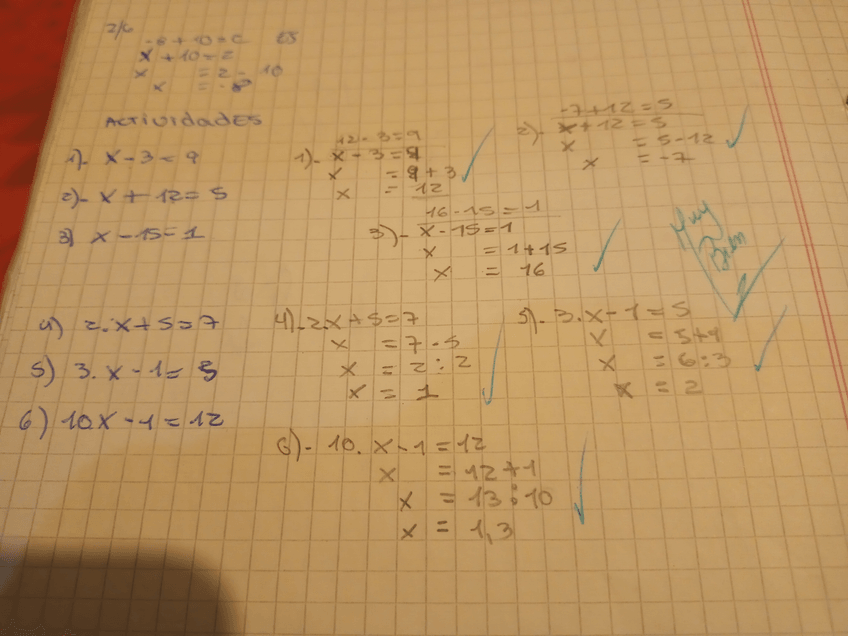 2/6
-8+10=2 ES
x+10=2
x =2-10
x =-8
ACTIVIDADES
1)- x-3=9
2)- x+12=5
3) x-15=1
12-3=9
1)- x-3=9
x =9+3
x = 12
-7+12=5
2)- x+12=5
x =5-12
x =-7
16-15=1
3)- x-15=1
x =1+15
x = 16
Muy
Bien
4) 2.x+5=7
5) 3.x-1=5
6) 10.x-1=12
4)-2.x+5=7
x =7-5
x = 2:2
x = 1
5)- 3.x-1=5
x =5+1
x =6:3
x = 2
6)- 10.x-1=12
x =12+1
x =13:10
x = 1,3